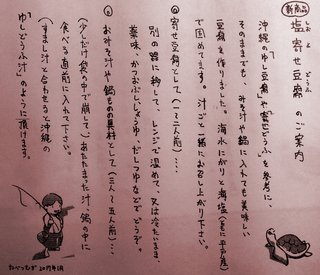 新商品 塩寄せ豆腐のご案内
沖縄の「ゆし豆腐」や「寄せどうふ」を参考に、
そのままでも、みそ汁や鍋に入れても美味しい
豆腐を作りました。海水にがりと海塩(主に平釜)
で固めてます。汁ごと一緒にお召し上がり下さい。
◎寄せ豆腐として(一~二人前)…
別の器に移して、レンジで温めて、又は冷たいまま、
薬味、かつおぶし、しょうゆ、だしつゆなどでどうぞ。
◎おみそ汁や、鍋ものの具材として(三~五人前)…
(少しだけ袋の中で崩して)あたたまった汁、鍋の中に
食べる直前に入れて下さい。
(すまし汁と合わせると沖縄の
「ゆしどうふ汁」のように頂けます。